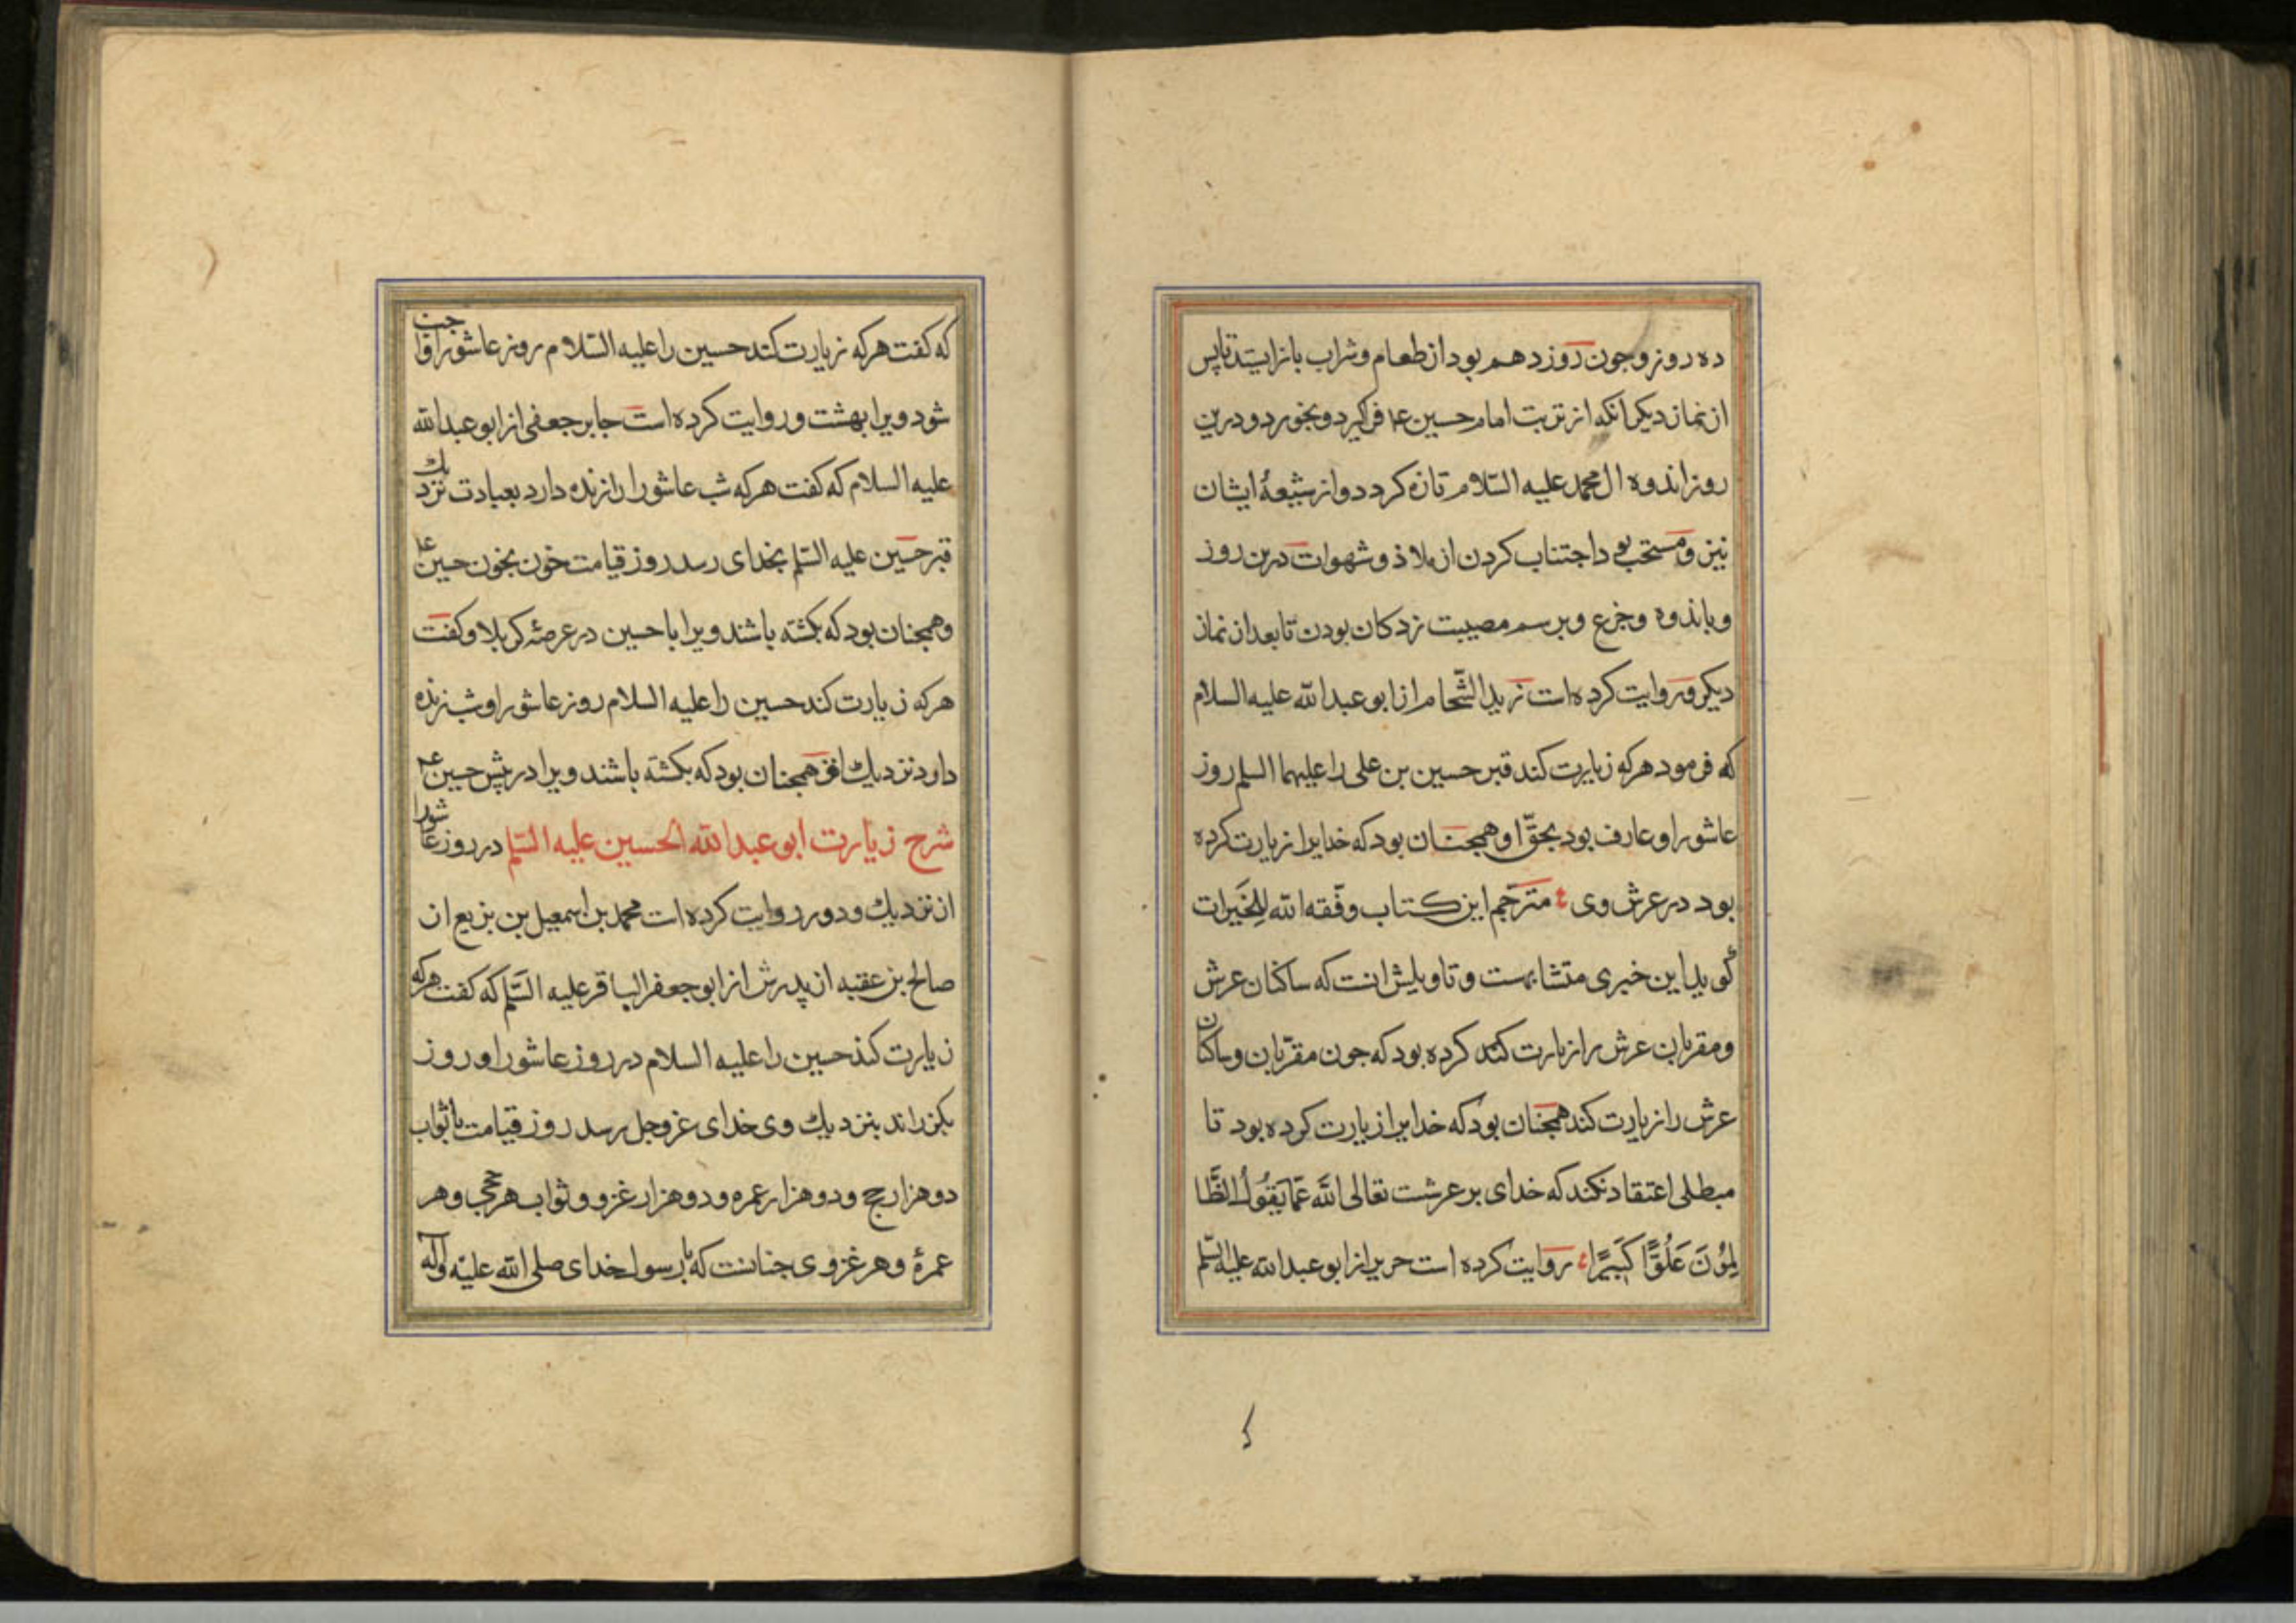 ده روز و جون روز دهم بود از طعام و شراب باز ایستد تا پس
از نماز دیکر آنکه از تربت امام حسین عم فراکیرد و بخورد و درین
روز اندوه ال محمد علیه السّلام تازه کردد و از شیعهٔ ایشان
نیز و مستحب بود اجتناب کردن از ملاذ و شهوات درین روز
و باندوه و جزع و برسم مصیبت زدکان بودن تا بعد از نماز
دیکر و روایت کرده است زید الشّحام از ابو عبد الله علیه السلام
که فرمود هرکه زیارت کند قبر حسین بن علی را علیهما السلم روز
عاشورا و عارف بود بحقّ او همجنان بود که خدایرا زیارت کرده
بود در عرش وی مترجم این کتاب وفّقه الله للخَیرات
گوید این خبری متشابهست و تاویلش انست که ساکنان عرش
و مقربان عرش را زیارت کند کرده بود که جون مقرّبان و ساکنان
عرش را زیارت کند همجنان بود که خدایرا زیارت کرده بود تا
مبطلی اعتقاد نکند که خدای بر عرشت تعالی الله عَمّا یَقُولُ الظَّا
لِمُونَ عَلُوًّا کَبیرًا روایت کرده است حریز از ابو عبد الله علیه السّلم
که کفت هرکه زیارت کند حسین را علیه السّلام روز عاشورا واجب
شود ویرا بهشت و روایت کرده است جابر جعفی از ابو عبد الله
علیه السلام که کفت هرکه شب عاشورا را زنده دارد بعبادت نزدیك
قبر حسین علیه السّلم بخدای رسد روز قیامت خون بخون حسین عم
و همجنان بود که بکشته باشند ویرا با حسین در عرصهٔ کربلا و کفت
هرکه زیارت کند حسین را علیه السلام روز عاشورا و شب زنده
دارد نزدیك او همجنان بود که بکشته باشند ویرا در پیش حسین عم
شرح زیارت ابو عبد الله الحسین علیه السّلم در روز عاشورا
از نزدیك و دور روایت کرده است محمد بن اسمعیل بن بزیع از
صالح بن عقبه از پدرش از ابو جعفر الباقر علیه السّلم که کفت هرکه
زیارت کند حسین را علیه السلام در روز عاشورا و روز
بکزراند بنزدیك وی خدای عزوجل رسد روز قیامت با ثواب
دو هزار حج و دو هزار عمره و دو هزار غزو و ثواب هر حجی و هر
عمرهٔ و هر غزوی جنانست که با رسول خدای صلی الله علیه و آله